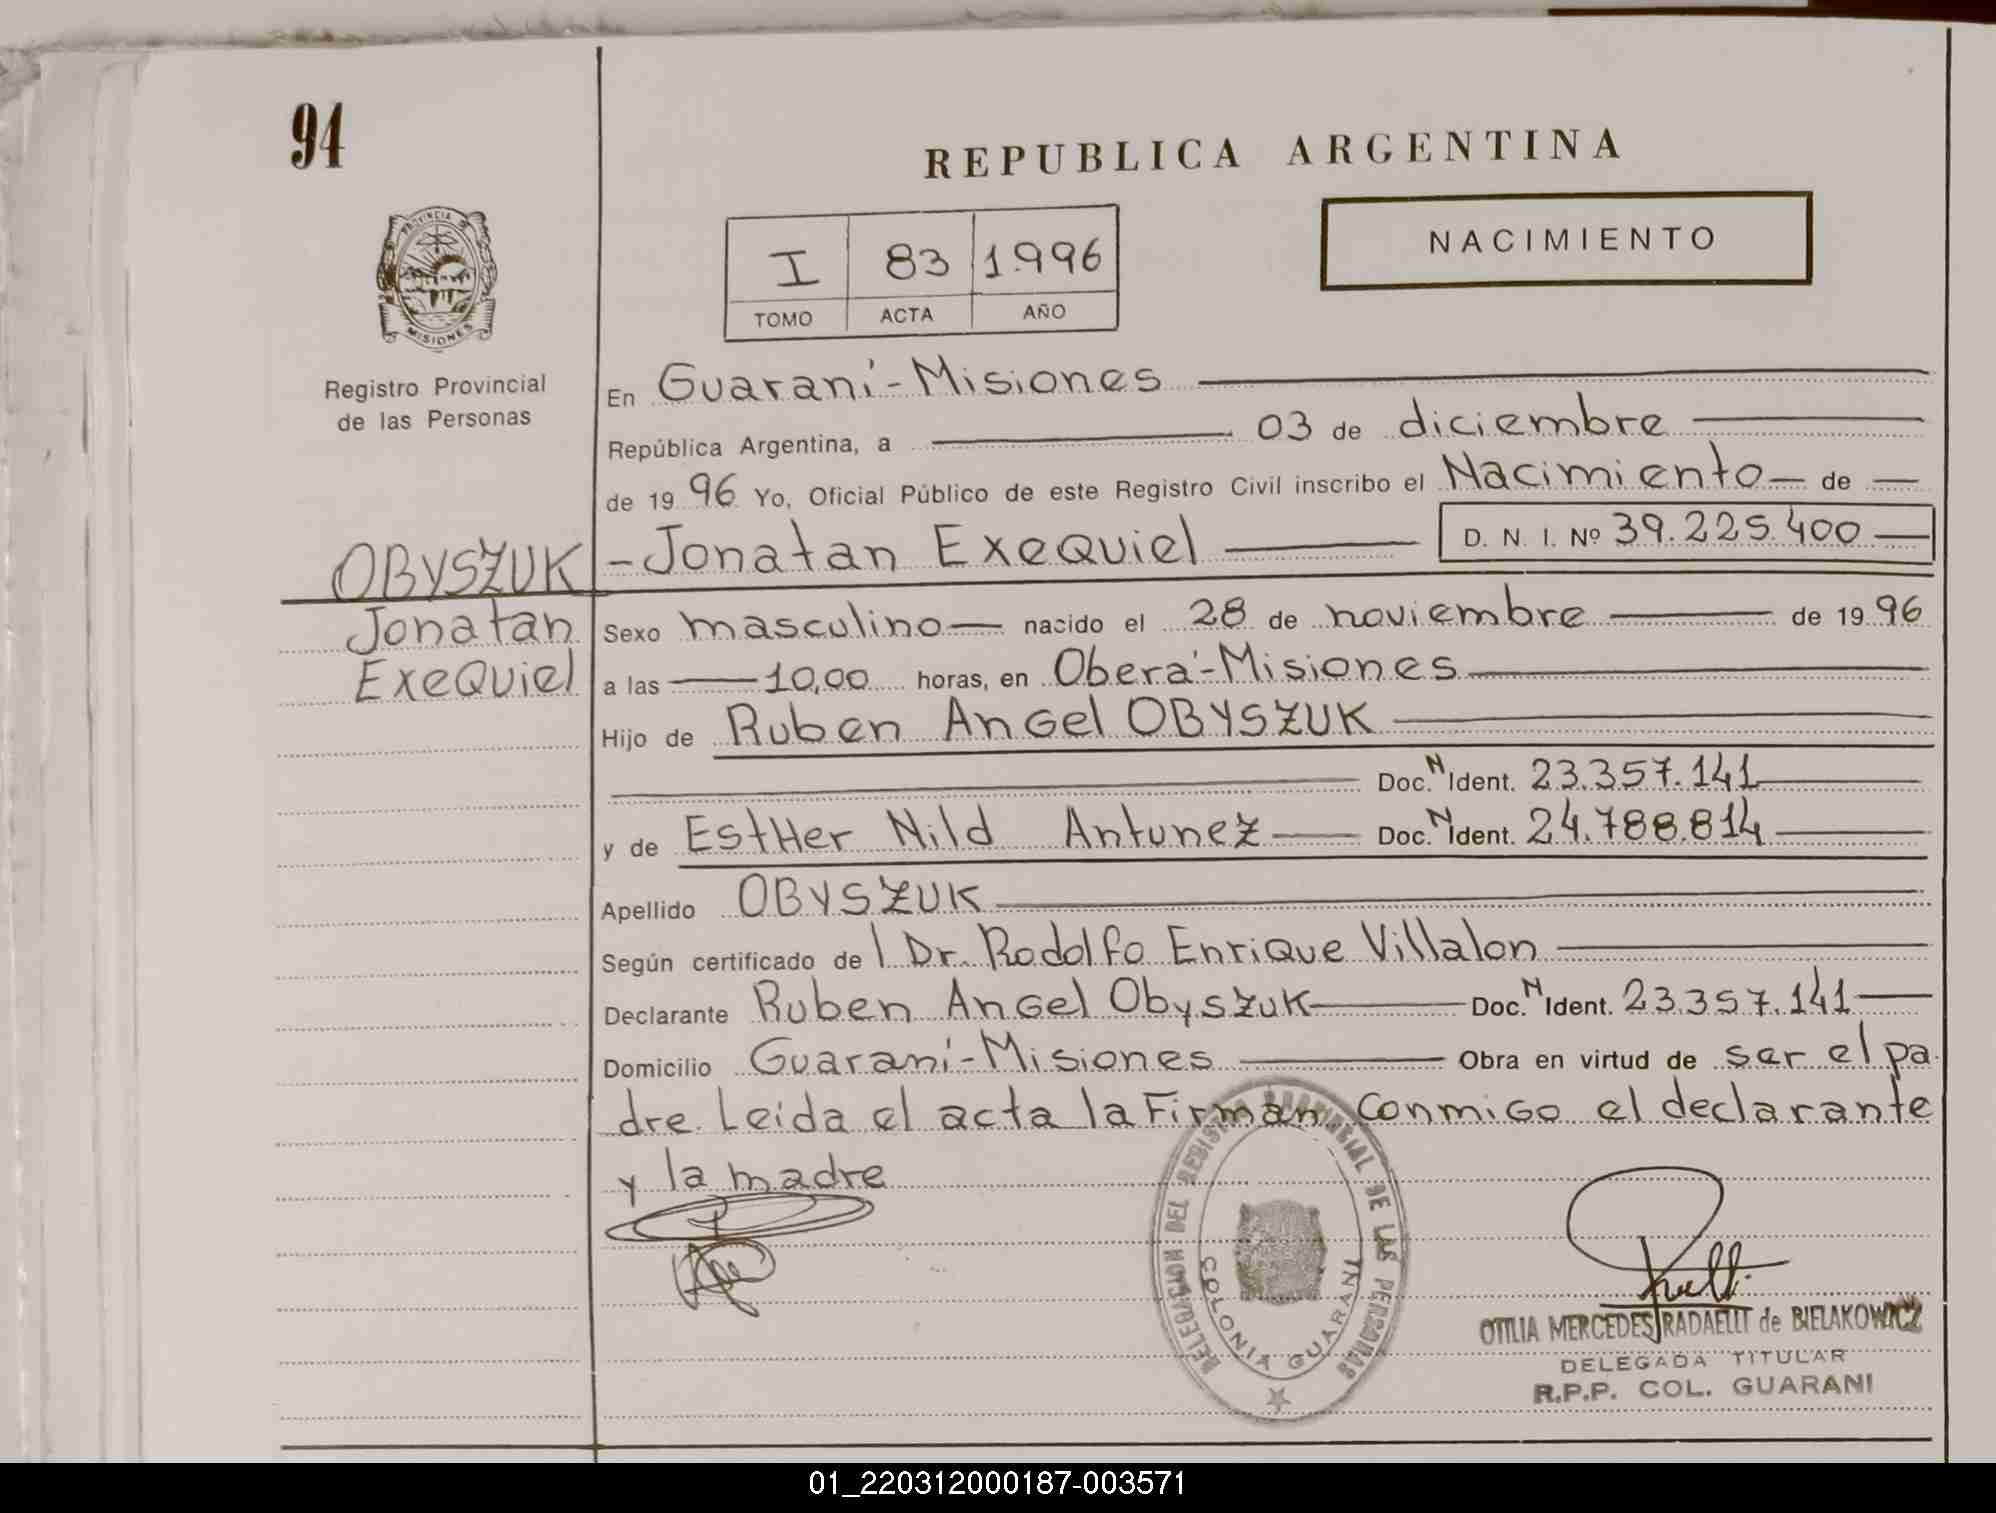 94
REPUBLICA ARGENTINA
PROVINCIA DE
MISIONES
I 83 1.996
TOMO ACTA AÑO
NACIMIENTO
Registro Provincial
de las Personas
En Guaraní-Misiones
República Argentina, a 03 de diciembre
de 1996 Yo, Oficial Público de este Registro Civil inscribo el Nacimiento de
OBYSZUK
Jonatan
Exequiel
-Jonatan Exequiel D. N. I. Nº 39.225.400
Sexo masculino nacido el 28 de noviembre de 1996
a las 10,00 horas, en Oberá-Misiones
Hijo de Ruben Angel OBYSZUK
Doc. N Ident. 23.357.141
y de Esther Nild Antunez Doc. N Ident. 24.788.814
Apellido OBYSZUK
Según certificado de l Dr. Rodolfo Enrique Villalon
Declarante Ruben Angel Obyszuk Doc. N Ident. 23.357.141
Domicilio Guaraní-Misiones Obra en virtud de ser el pa-
dre. Leida el acta la Firman Conmigo el declarante
y la madre
DELEGACION DEL REGISTRO PROVINCIAL DE LAS PERSONAS
COLONIA GUARANI
OTILIA MERCEDES RADAELLI de BIELAKOWICZ
DELEGADA TITULAR
R.P.P. COL. GUARANI
01_220312000187-003571